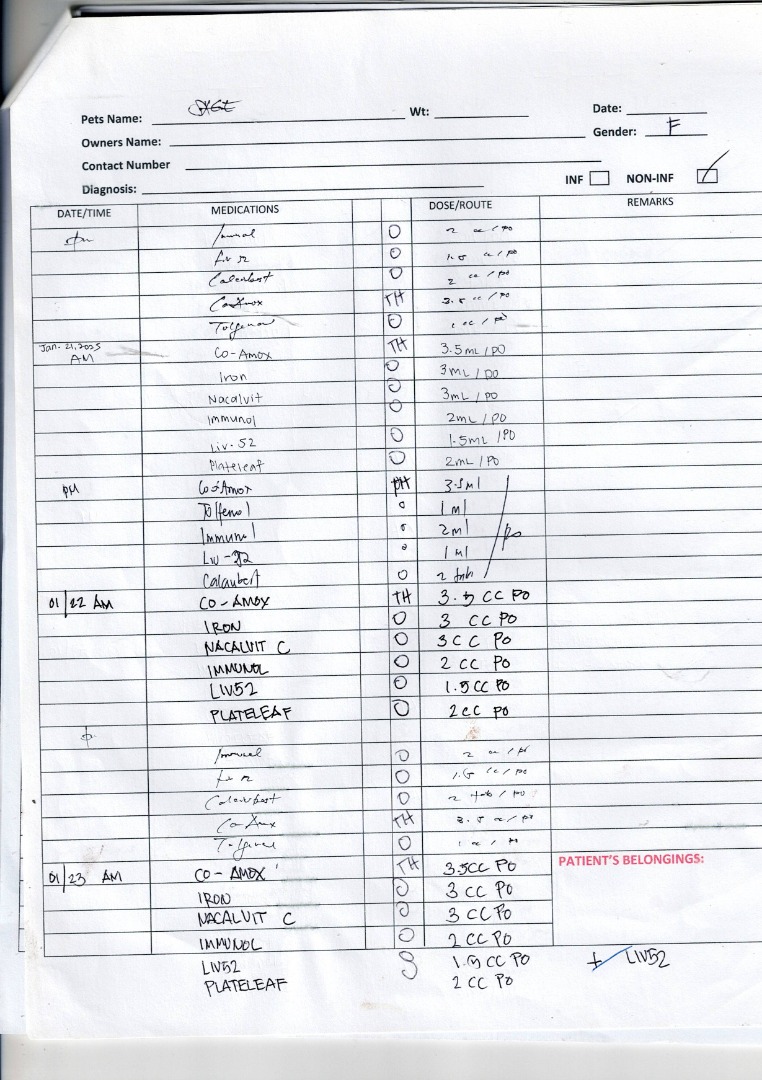 Pets Name: Wt: Date:
Owners Name: Gender: F
Contact Number
Diagnosis: INF NON-INF
DATE/TIME MEDICATIONS DOSE/ROUTE REMARKS
Immunol O 2 cc / PO
Liv 52 O 1.5 cc / PO
O 2 cc / PO
Co-Amox TH 3.5 cc / PO
O 1 cc / PO
Jan. 21, 2025 AM Co-Amox TH 3.5 mL / PO
Iron O 3 mL / PO
Nacalvit O 3 mL / PO
Immunol O 2 mL / PO
Liv-52 O 1.5 mL / PO
Plateleaf O 2 mL / PO
PM Co-Amox 3.5 ml
Tolfenol o 1 ml
Immunol o 2 ml / po
Liv-52 o 1 ml
O 2 tab
01/22 AM CO-AMOX TH 3.5 CC PO
IRON O 3 CC PO
NACALVIT C O 3 CC PO
IMMUNOL O 2 CC PO
LIV52 O 1.5 CC PO
PLATELEAF O 2 CC PO
Immunol O 2 cc / po
O 1.5 cc / po
O 2 tab / po
Co-Amox TH 3.5 cc / po
O 1 cc / po
01/23 AM CO-AMOX TH 3.5 CC PO PATIENT'S BELONGINGS:
IRON O 3 CC PO
NACALVIT C O 3 CC PO
IMMUNOL O 2 CC PO
LIV52 1.5 CC PO + LIV52
PLATELEAF 2 CC PO